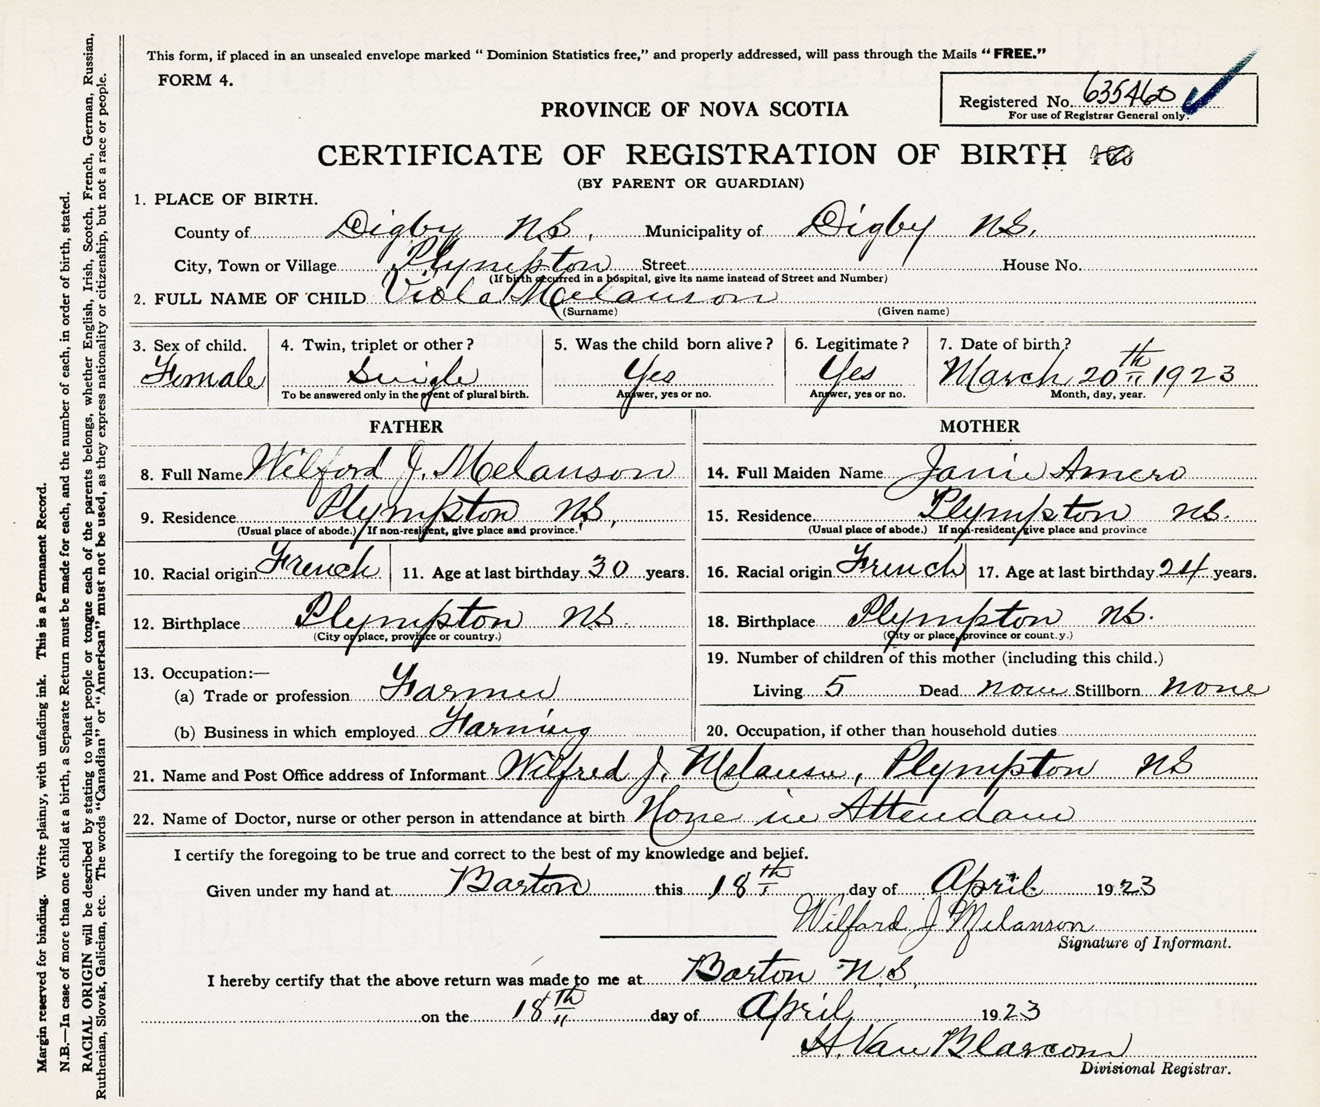 This form, if placed in an unsealed envelope marked "Dominion Statistics free," and properly addressed, will pass through the Mails "FREE."
FORM 4.
Registered No. 635460
For use of Registrar General only.
PROVINCE OF NOVA SCOTIA
CERTIFICATE OF REGISTRATION OF BIRTH
(BY PARENT OR GUARDIAN)
1. PLACE OF BIRTH.
County of Digby NS, Municipality of Digby NS.
City, Town or Village Plympton Street House No.
(If birth occurred in a hospital, give its name instead of Street and Number)
2. FULL NAME OF CHILD Viola Melanson
(Surname) (Given name)
3. Sex of child. 4. Twin, triplet or other? 5. Was the child born alive? 6. Legitimate? 7. Date of birth?
Female Single Yes Yes March 20th 1923
To be answered only in the event of plural birth. Answer, yes or no. Answer, yes or no. Month, day, year.
FATHER MOTHER
8. Full Name Wilford J. Melanson 14. Full Maiden Name Janie Amero
9. Residence Plympton NS, 15. Residence Plympton NS.
(Usual place of abode.) If non-resident, give place and province. (Usual place of abode.) If non-resident, give place and province
10. Racial origin French 11. Age at last birthday 30 years. 16. Racial origin French 17. Age at last birthday 24 years.
12. Birthplace Plympton NS. 18. Birthplace Plympton NS.
(City or place, province or country.) (City or place, province or count.y.)
13. Occupation:— 19. Number of children of this mother (including this child.)
(a) Trade or profession Farmer Living 5 Dead none Stillborn none
(b) Business in which employed Farming 20. Occupation, if other than household duties
21. Name and Post Office address of Informant Wilfred J. Melanson, Plympton NS
22. Name of Doctor, nurse or other person in attendance at birth None in Attendance
I certify the foregoing to be true and correct to the best of my knowledge and belief.
Given under my hand at Barton this 18th day of April 1923
Wilford J Melanson
Signature of Informant.
I hereby certify that the above return was made to me at Barton N.S.
on the 18th day of April 1923
H. Van Blarcom
Divisional Registrar.
Margin reserved for binding. Write plainly, with unfading ink. This is a Permanent Record.
N.B.—In case of more than one child at a birth, a Separate Return must be made for each, and the number of each, in order of birth, stated.
RACIAL ORIGIN will be described by stating to what people or tongue each of the parents belongs, whether English, Irish, Scotch, French, German, Russian,
Ruthenian, Slovak, Galician, etc. The words "Canadian" or "American" must not be used, as they express nationality or citizenship, but not a race or people.